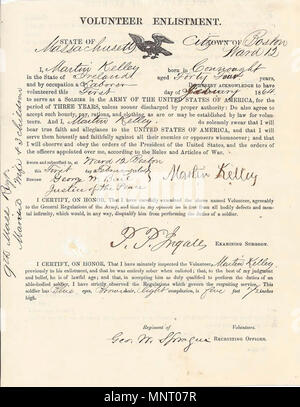 VOLUNTEER ENLISTMENT.
STATE OF City TOWN OF Boston
Massachusetts Ward 12
I, Martin Kelley born in Connought
in the State of Ireland aged Forty Four years,
and by occupation a Laborer DO HEREBY ACKNOWLEDGE to have
volunteered this First day of February 1864
to serve as a Soldier in the ARMY OF THE UNITED STATES OF AMERICA, for the
period of THREE YEARS, unless sooner discharged by proper authority: Do also agree to
accept such bounty, pay, rations, and clothing, as are or may be established by law for volun-
teers. And I, Martin Kelley do solemnly swear that I will
bear true faith and allegiance to the UNITED STATES OF AMERICA, and that I will
serve them honestly and faithfully against all their enemies or opposers whomsoever; and that I will
observe and obey the orders of the President of the United States, and the orders of
the officers appointed over me, according to the Rules and Articles of War.
Sworn and subscribed to at Ward 12 Boston
this First day of February 1864 Martin Kelley
BEFORE George W.
Justice of the Peace
I CERTIFY, ON HONOR, That I have carefully examined the above named Volunteer, agreeably
to the General Regulations of the Army, and that in my opinion he is free from all bodily defects and men-
tal infirmity, which would, in any way, disqualify him from performing the duties of a soldier.
P. P. Ingalls
EXAMINING SURGEON.
I CERTIFY, ON HONOR, That I have minutely inspected the Volunteer, Martin Kelley
previously to his enlistment, and that he was entirely sober when enlisted; that, to the best of my judgment
and belief, he is of lawful age; and that, in accepting him as duly qualified to perform the duties of an
able-bodied soldier, I have strictly observed the Regulations which govern the recruiting service. This
soldier has Blue eyes, Brown hair, light complexion, is five feet 7 inches
high.
Regiment of Volunteers.
Geo. W. Sprague RECRUITING OFFICER.
9th Mass Regt
Married Wife & children
alamy
MNT07R